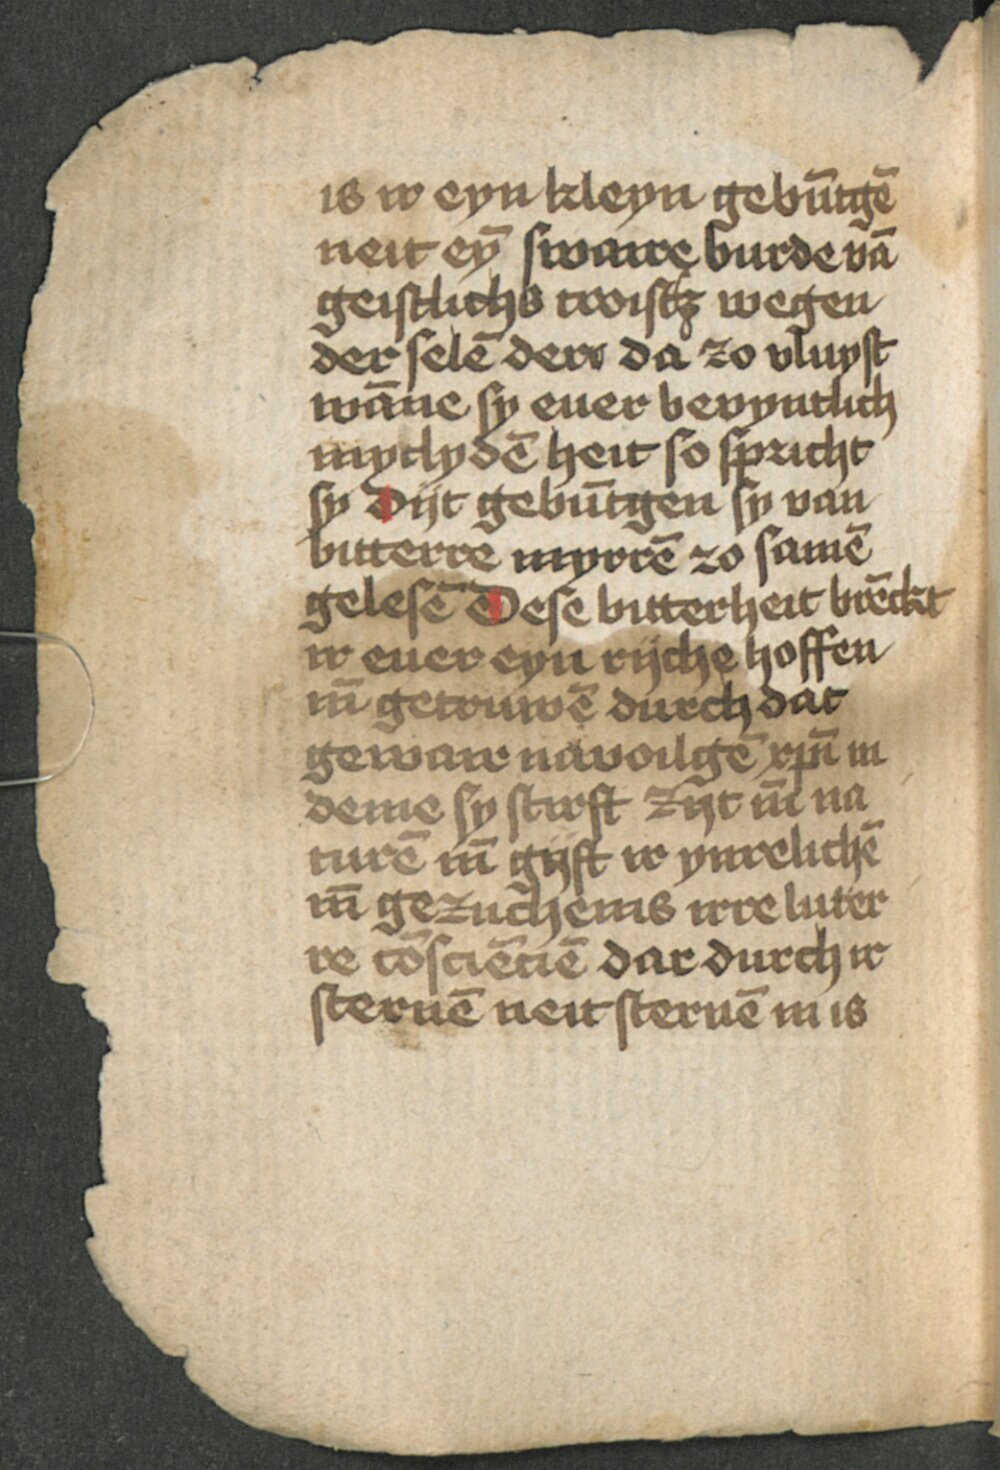 is ir eyn kleyn gebūtgē
neit eȳ sware burde vā
geistlichs troistz wegen
der selē der da zo vluyst
wāne sy euer bevyntlich
mytlydē heit so spricht
sy Dijt gebūtgen sy van
bitterre myrrē zo samē
gelesē Dese bitterheit brēckt
ir euer eyn rijche hoffen
in̄ getruwē durch dat
gewair navoilgē xpm̄ in
deme sy stirft zijt in̄ na
turē in̄ gijft ir ynrelichē
in̄ gezuchenis irre luter
re cōsciēciē dar durch ir
steruē neit steruē in is